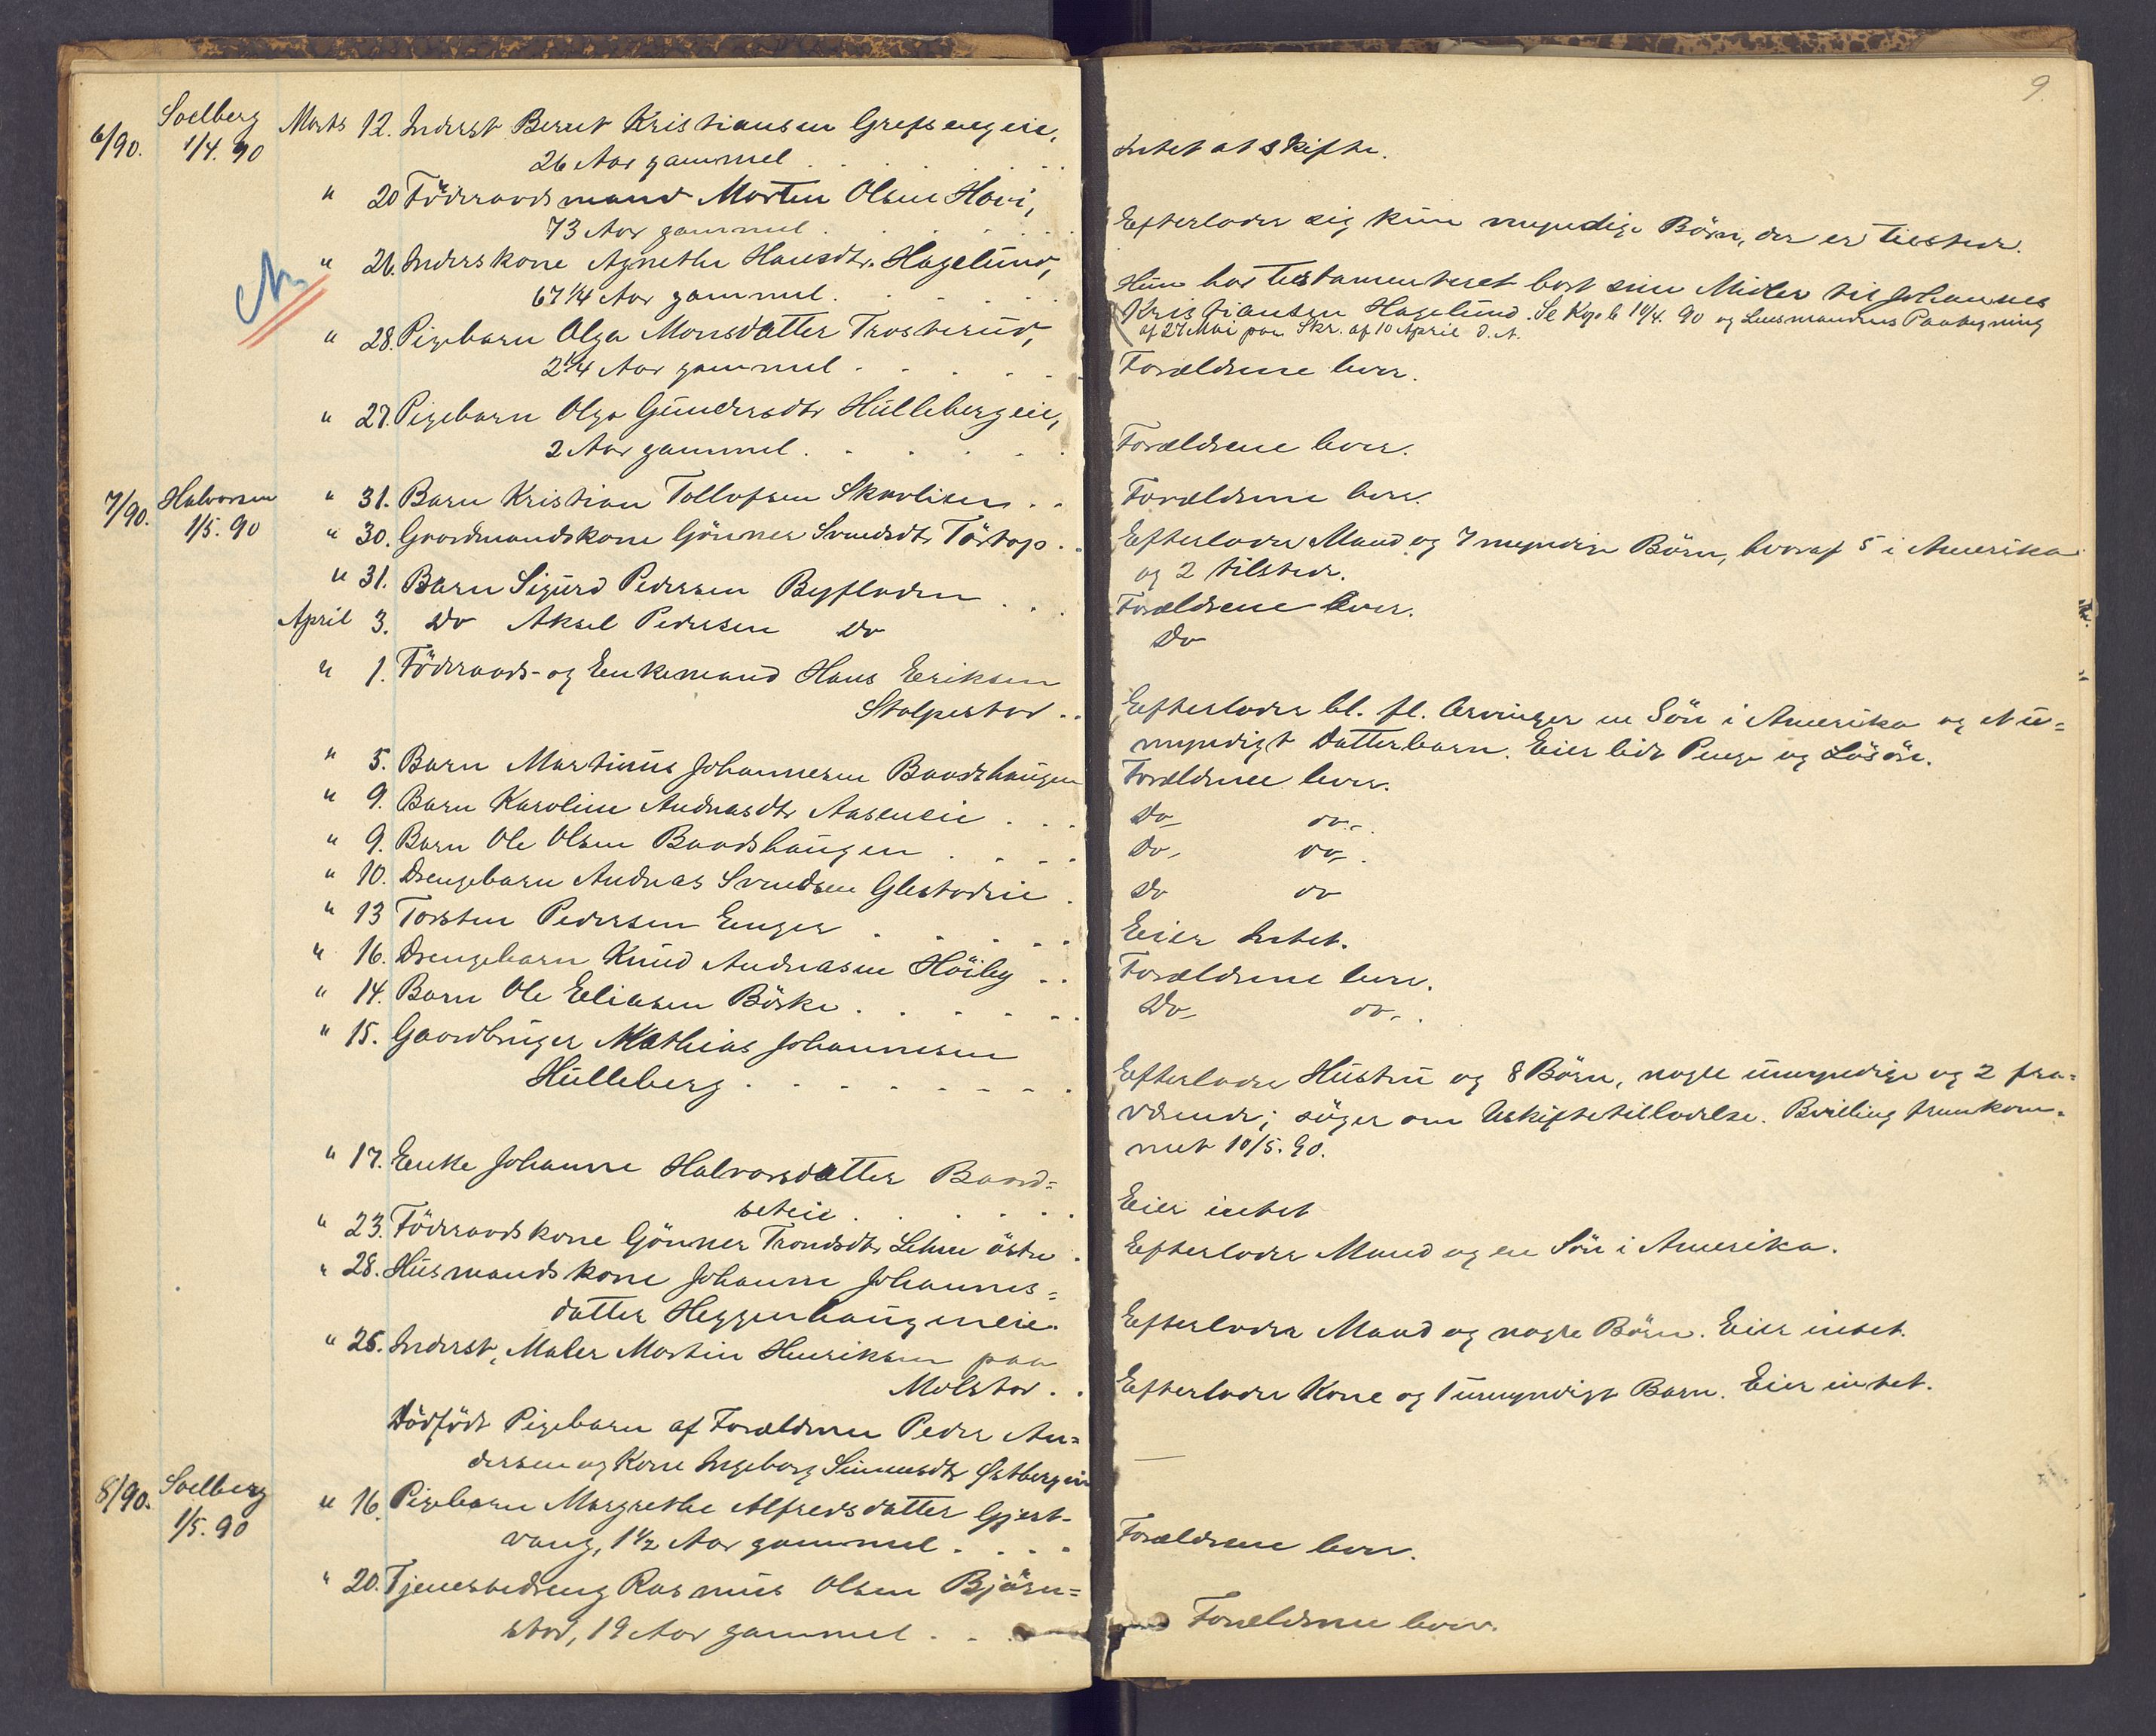 6/90. Soelberg Marts 12. Inderst Bernt Kristiansen Grefsengeie,
1/4. 90
26 Aar gammel . . . . . .
" 20 Föderaadsmand Morten Olsen Hovi,
73 Aar gammel . . . . . .
" 26. Inderskone Agnethe Hansdtr. Hagelund,
67 1/4 Aar gammel . . . . . .
" 28. Pigebarn Olga Monsdatter Trosterud,
2 1/4 Aar gammel . . . . . .
" 27. Pigebarn Olga Gundersdtr Hullebergeie,
2 Aar gammel . . . . . .
7/90. Halvorsen " 31. Barn Kristian Tollofsen . .
1/5. 90 " 30. Gaardmandskone Gönner Svendsdtr Törtop . .
" 31. Barn Sigurd Pedersen Byfladen . . .
April 3. Do Aksel Pedersen Do
" 1. Föderaads- og Enkemand Hans Eriksen
Stalpestad . .
" 5. Barn Martinus Johannesen Baadshaugen
" 9. Barn Karoline Andreasdtr Aaseneie . . .
" 9. Barn Ole Olsen Baadshaugen . . . .
" 10. Drengebarn Andreas Svendsen Glestadeie .
" 13 Torsten Pedersen Enger . . . . .
" 16. Drengebarn Knud Andreasen Höiby . .
" 14. Barn Ole Eliasen Börke . . . . . .
" 15. Gaardbruger Mathias Johannesen
Hulleberg . . . . . . . .
" 17. Enke Johanne Halvorsdatter Baard=
seteie . . . . . .
" 23. Föderaadskone Gönner Trondsdtr Lehne östre .
" 28. Husmandskone Johanne Johannes=
datter Heggenhaugeneie.
" 25. Inderst, Maler Martin Henriksen paa
Molstad . .
Dödfödt Pigebarn af Forældrene Peder An=
dersen og Kone Ingeborg Simensdtr Østbergeie
8/90. Soelberg " 16. Pigebarn Margrethe Alfredsdatter Gjest-
1/5. 90
vang, 1 1/2 Aar gammel . . . .
" 20. Tjenestedreng Rasmus Olsen Björn=
stad, 19 Aar gammel . . .
9.
Intet at skifte.
Efterlader sig kun myndige Börn, der er tilstede.
Hun har testamenteret bort sine Midler til Johannes
Kristiansen Hagelund. Se Kopb 14/4. 90 og Lensmandens Paategning
af 27 Mai paa Skr. af 10 April d. A.
Forældrene lever.
Forældrene lever.
Forældrene lever.
Efterlader Mand og 7 myndige Börn, hvoraf 5 i Amerika
og 2 tilstede.
Forældrene lever.
Do
Efterlader bl. fl. Arvinger en Sön i Amerika og et u=
myndigt Datterbarn. Eier lidt Penge og Lösöre.
Forældrene lever.
Do do.
Do do.
Do do
Eier Intet.
Forældrene lever.
Do do.
Efterlader Hustru og 8 Börn, nogle umyndige og 2 fra=
værende; söger om Uskiftetilladelse. Bevilling fremkom=
met 10/5. 90.
Eier intet
Efterlader Mand og en Sön i Amerika.
Efterlader Mand og nogle Börn. Eier intet.
Efterlader Kone og 1 umyndigt Barn. Eier intet.
—
Forældrene lever.
Forældrene lever.